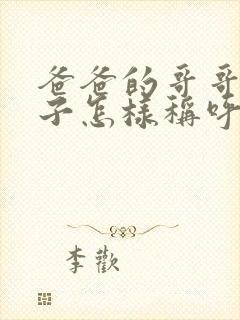 爸爸的哥哥
子怎樣稱呼
李歡